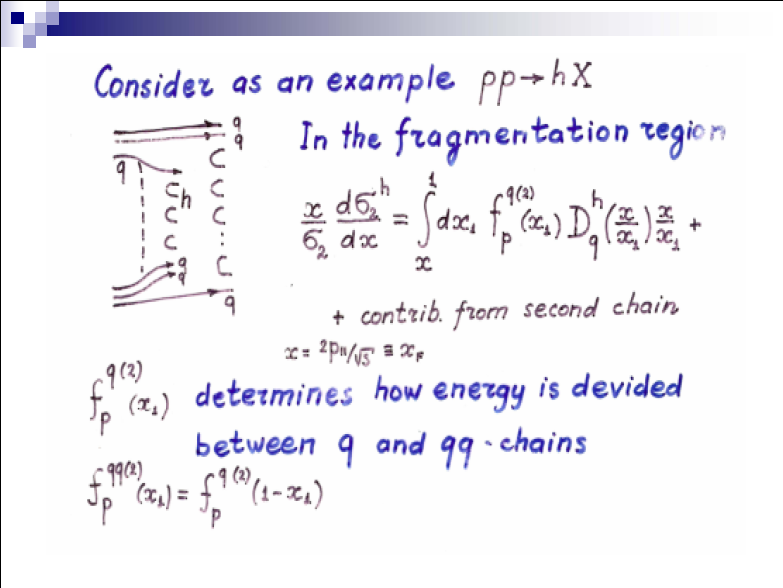 Consider as an example pp→hX
q
q
q
h
q
q
q
In the fragmentation region
x/σ₂ dσ₂ʰ/dx = ∫ₓ¹ dx₁ f_p^q(2)(x₁) D_q^h(x/x₁) x/x₁ +
+ contrib. from second chain
x = 2p_∥/√s ≡ x_F
f_p^q(2)(x₁) determines how energy is devided
between q and qq - chains
f_p^qq(2)(x₁) = f_p^q(2)(1-x₁)